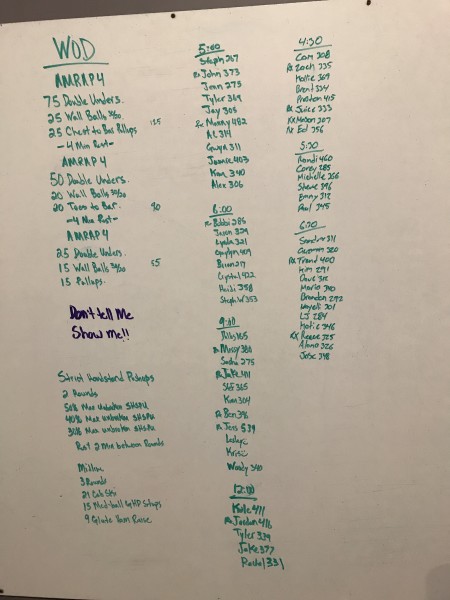 WOD
AMRAP 4
75 Double Unders.
25 Wall Balls 30/20
25 Chest to Bar Pullups 125
- 4 Min Rest -
AMRAP 4
50 Double Unders.
20 Wall Balls 30/20
20 Toes to Bar. 90
- 4 Min Rest -
AMRAP 4
25 Double Unders.
15 Wall Balls 30/20 55
15 Pullups.
Don't tell Me
Show me!!
Strict Handstand Pushups
2 Rounds
50% Max Unbroken SHSPU
40% Max unbroken SHSPU
30% Max unbroken SHSPU
Rest 2 min between Rounds
Midline
3 Rounds
21 Calf Str
15 Med-ball GHD Situps
9 Glute Ham Raise
5:00
Steph 267
Rx John 373
Jenn 273
Tyler 369
Jay 305
Rx Manny 482
AC 314
Gwyn 311
Jamie 403
Kim 340
Alex 306
6:00
Rx Bobbi 285
Jason 329
Lynda 321
Byron 217
Crystal 422
Heidi 358
Steph W 353
9:00
Rx Missy 380
Sasha 275
Rx Jake 411
Stef 365
Kim 304
Rx Ben 396
Rx Jens 539
Krissi
Wendy 340
12:00
Kyle 411
Rx Jordan 416
Tyler 339
Jake 377
Rachel 331
4:30
Cam 308
Rx Zach 335
Hollie 369
Brent 334
Preston 415
Rx Juice 333
Rx Mason 307
Rx Ed 356
5:30
Randi 460
Corey 285
Michelle 266
Steve 396
Emmy 312
Paul 345
6:30
Sandra 311
Cameron 320
Rx Trend 400
Kim 291
Dave 315
Maria 340
Brandon 292
Nayeli 301
LJ 284
Katie 346
Rx Reese 325
Alana 326
Jose 348